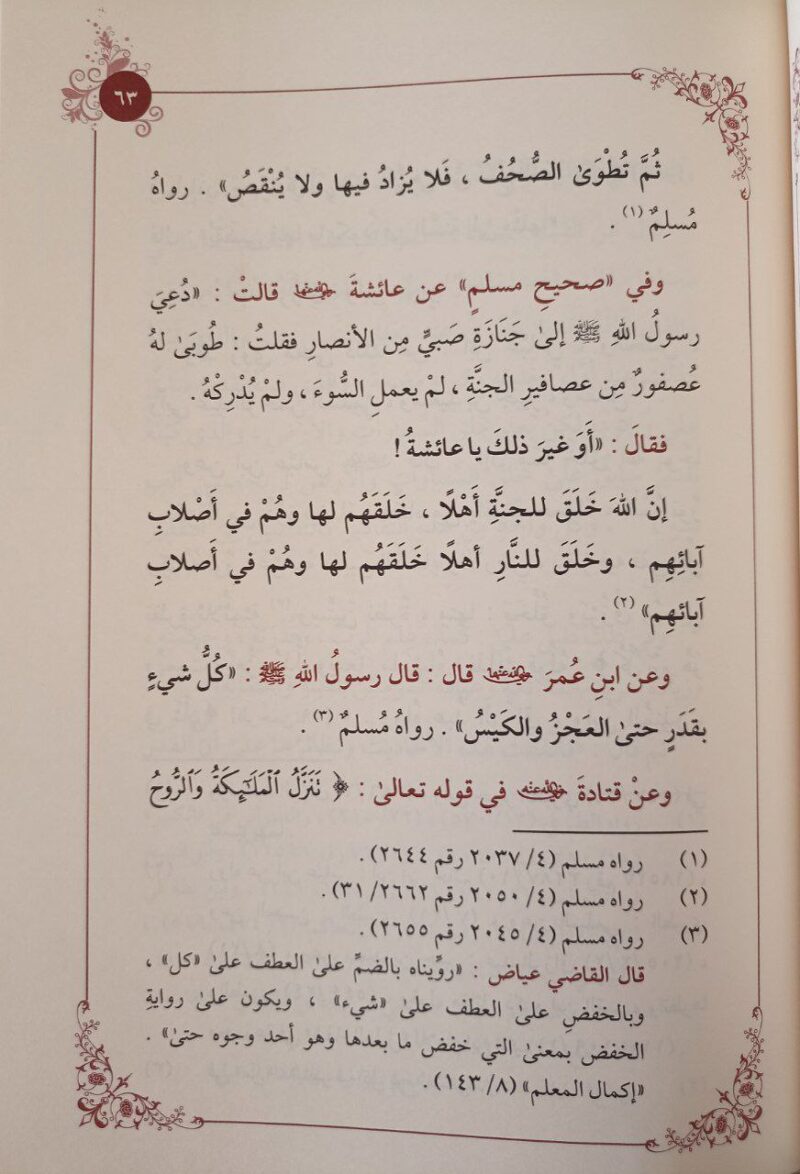 ٦٣
ثُمَّ تُطْوَىٰ الصُّحُفُ ، فَلا يُزادُ فيها ولا يُنْقَصُ» . رواهُ
مُسلِمٌ (١) .
وفي «صحيحِ مسلمٍ» عن عائشةَ رضي الله عنها قالتْ : «دُعِيَ
رسولُ اللهِ ﷺ إلىٰ جَنَازَةِ صَبيٍّ مِن الأنصارِ فقلتُ : طُوبَىٰ لهُ
عُصفورٌ مِن عصافيرِ الجنَّةِ ، لمْ يعملِ السُّوءَ ، ولمْ يُدْرِكْهُ .
فقالَ : «أَوَ غيرَ ذلكَ يا عائشةُ !
إنَّ اللهَ خَلَقَ للجنَّةِ أَهْلًا ، خَلَقَهُم لها وهُمْ في أَصْلابِ
آبائِهِم ، وخَلَقَ للنَّارِ أهلًا خَلَقَهُم لها وهُمْ في أَصلابِ
آبائهِم» (٢) .
وعن ابنِ عُمرَ رضي الله عنهما قال : قال رسولُ اللهِ ﷺ : «كُلُّ شيءٍ
بقَدَرٍ حتىٰ العَجْزُ والكَيْسُ» . رواهُ مُسلمٌ (٣) .
وعنْ قتادةَ رضي الله عنه في قوله تعالىٰ : ﴿ تَنَزَّلُ ٱلْمَلَٰٓئِكَةُ وَٱلرُّوحُ
(١) رواه مسلم (٤/ ٢٠٣٧ رقم ٢٦٤٤) .
(٢) رواه مسلم (٤/ ٢٠٥٠ رقم ٢٦٦٢/ ٣١) .
(٣) رواه مسلم (٤/ ٢٠٤٥ رقم ٢٦٥٥) .
قال القاضي عياض : «روِّيناه بالضمِّ علىٰ العطف علىٰ «كل» ،
وبالخفضِ علىٰ العطف علىٰ «شيء» ، ويكون علىٰ روايةِ
الخفض بمعنىٰ التي خفض ما بعدها وهو أحد وجوه حتىٰ» .
«إكمال المعلم» (٨/ ١٤٣) .